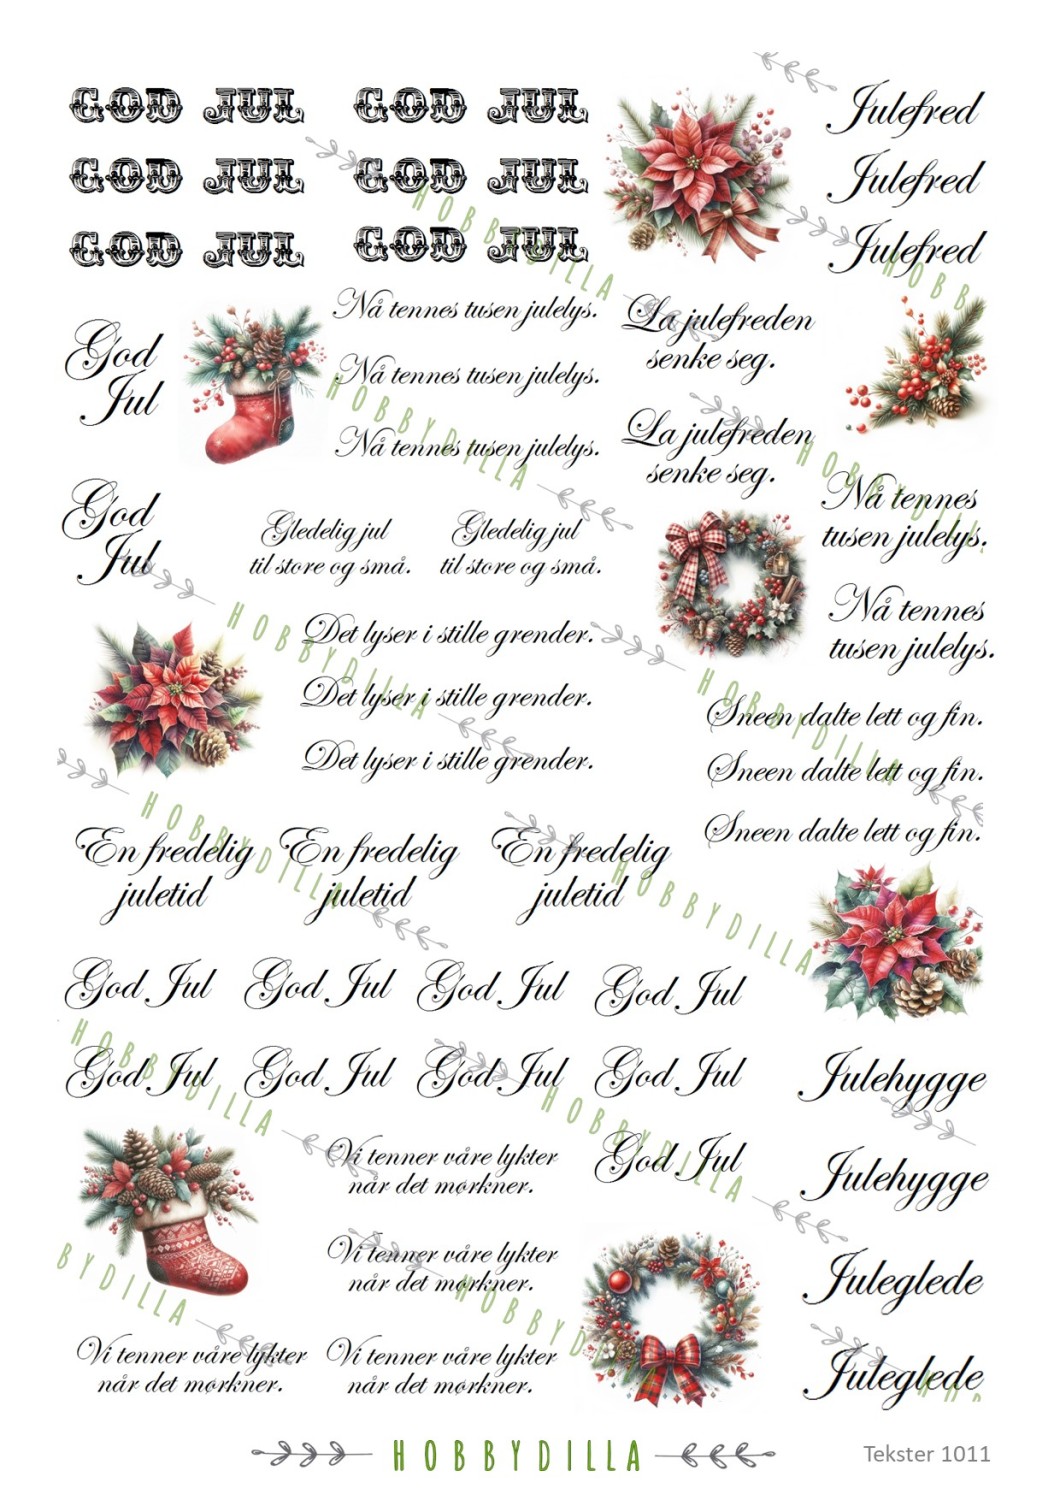 GOD JUL GOD JUL
GOD JUL GOD JUL
GOD JUL GOD JUL
Julefred
Julefred
Julefred
God
Jul
Nå tennes tusen julelys.
Nå tennes tusen julelys.
Nå tennes tusen julelys.
La julefreden
senke seg.
La julefreden
senke seg.
Nå tennes
tusen julelys.
Nå tennes
tusen julelys.
God
Jul
Gledelig jul
til store og små.
Gledelig jul
til store og små.
Det lyser i stille grender.
Det lyser i stille grender.
Det lyser i stille grender.
Sneen dalte lett og fin.
Sneen dalte lett og fin.
Sneen dalte lett og fin.
En fredelig
juletid
En fredelig
juletid
En fredelig
juletid
God Jul God Jul God Jul God Jul
God Jul God Jul God Jul God Jul
God Jul
Julehygge
Julehygge
Vi tenner våre lykter
når det mørkner.
Vi tenner våre lykter
når det mørkner.
Vi tenner våre lykter
når det mørkner.
Vi tenner våre lykter
når det mørkner.
Juleglede
Juleglede
HOBBYDILLA
HOBBYDILLA
HOBBYDILLA
HOBBYDILLA
HOBBYDILLA
HOBBYDILLA
HOBBYDILLA
HOBBYDILLA
HOBBYDILLA
HOBB
BYDILLA
HOBBYDI
HOB
HOBBYDILLA
Tekster 1011